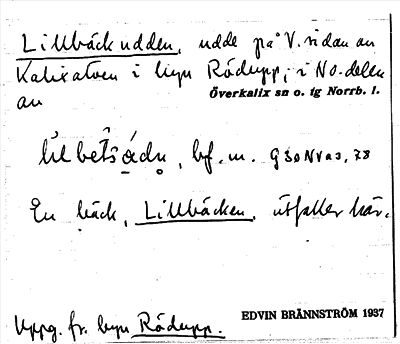 Lillbäckudden, udde på V. sidan av
Kalixälven i byn Rödupp, i NO-delen
av Överkalix sn o. tg Norrb. l.
bf. m.
En bäck, Lillbäcken, utfaller här.
Uppg. fr. byn Rödupp.
EDVIN BRÄNNSTRÖM 1937